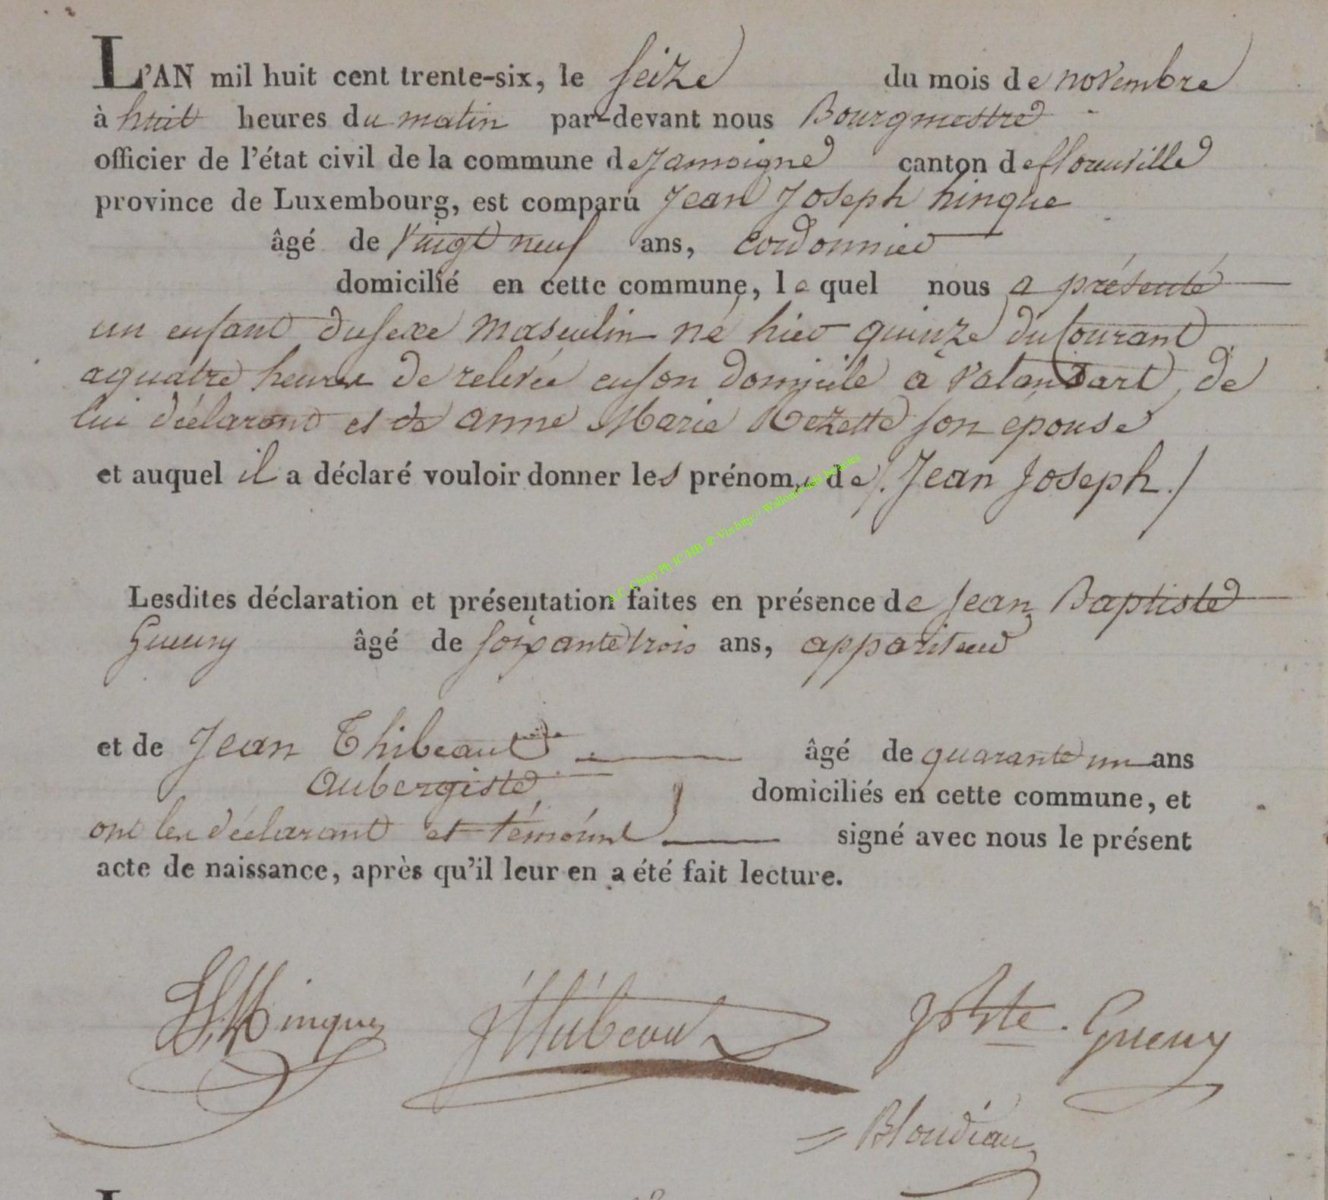 L'AN mil huit cent trente-six, le seize du mois de novembre
à huit heures du matin par-devant nous Bourgmestre
officier de l'état civil de la commune de Jamoigne canton de florenville
province de Luxembourg, est comparu Jean Joseph hinque
âgé de vingt neuf ans, cordonnier
domicilié en cette commune, le quel nous a présenté
un enfant du sexe masculin né hier quinze du courant
a quatre heures de relevée en son domicile à Valansart, de
lui déclarant et de anne Marie Rezette son epouse
et auquel il a déclaré vouloir donner les prénoms de /. Jean Joseph ./
Lesdites déclaration et présentation faites en présence de Jean Baptiste
Gueury âgé de soixante trois ans, appariteur
et de Jean Thibeaut âgé de quarante un ans
aubergiste domiciliés en cette commune, et
ont les déclarant et témoins signé avec nous le présent
acte de naissance, après qu'il leur en a été fait lecture.
Hinque JThibeau JBte. Gueury
Blondiau